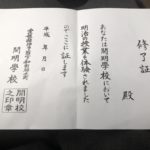 修了証
殿
あなたは開明学校において
明治の授業を体験されました
のでここに証します
平成　年　月　日
開明學校
開明校
之印章